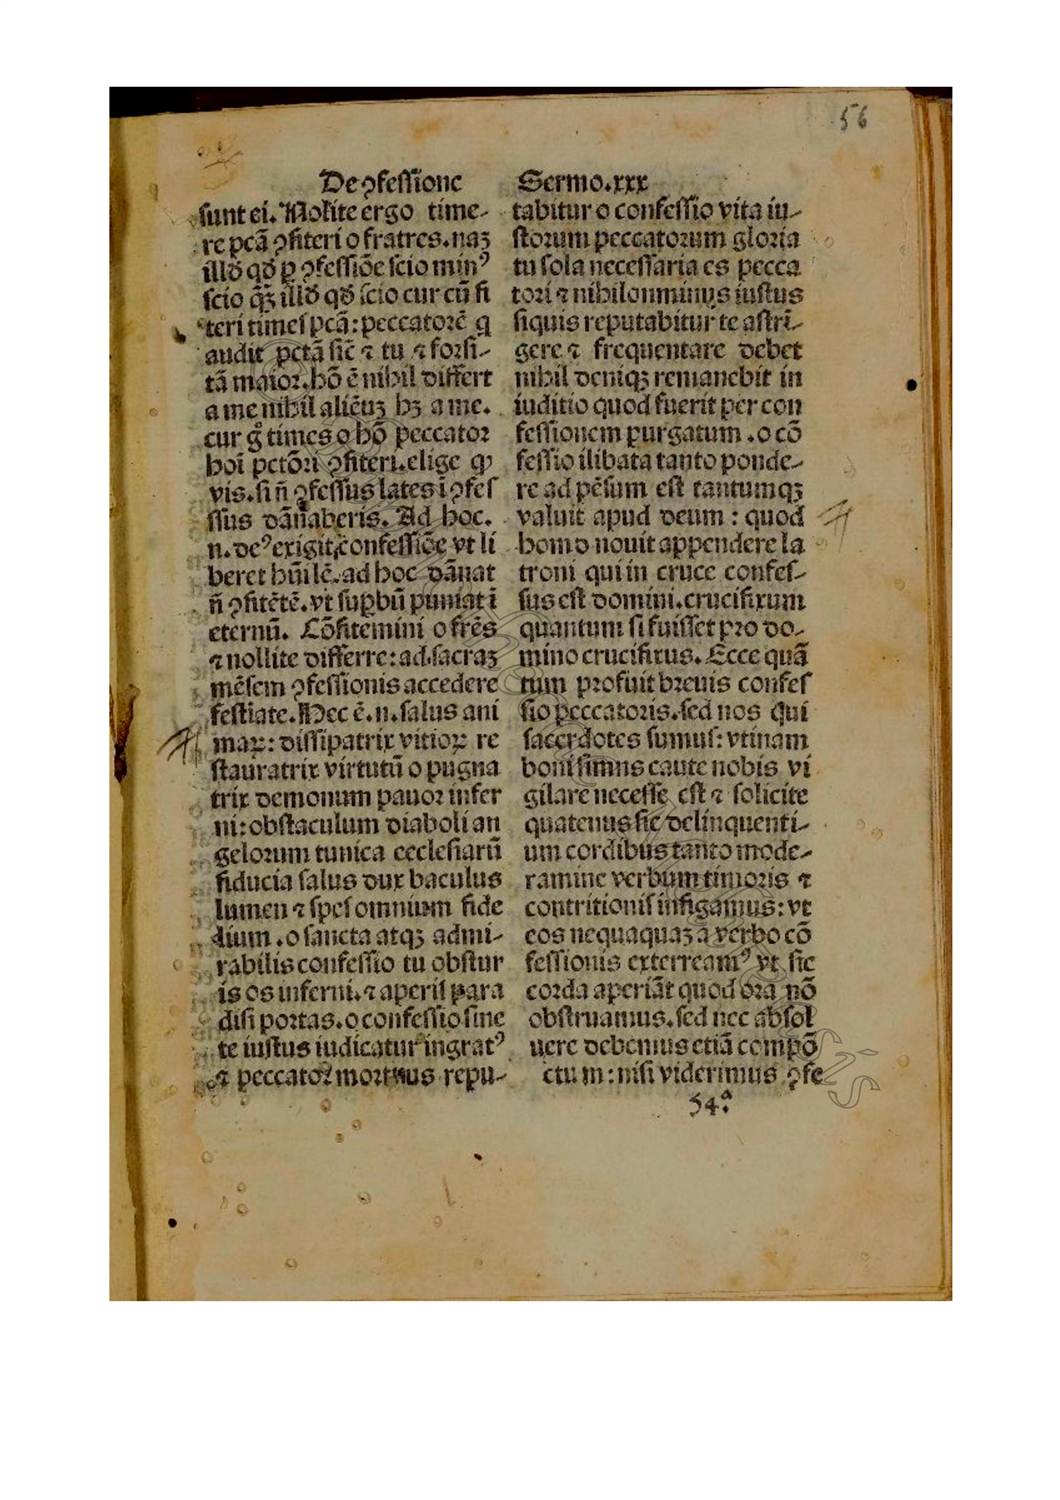 56
De ꝯfessione Sermo.xxx
sunt ei. Nolite ergo time-
re pcā ꝯfiteri o fratres.naꝫ
illđ qđ ꝑ ꝯfessiōe scio minꝰ
scio q̄ꝫ illđ qđ scio cur cū fi
teri times pcā: peccatorē q
audit pctā sic̄ ⁊ tu ⁊ forsi-
tā maior.hō ē nihil differt
a me nihil aliēuꝫ hꝫ a me.
cur gͦ times o hō peccator
hoī pctōri ꝯfiteri.elige qꝭ
vis.si ñ ꝯfessus lates ī ꝯfes
ssus dāñaberis. Ad hoc.
n.deꝰ exigit cōnfessiōe vt li
beret hūilē.ad hoc dāuat
ñ ꝯfitētē.vt supbū puniat ī
eternū. Cōfitemini o frēs
⁊ nollite differre: ad sacraꝫ
mēsem ꝯfessionis accedere
festiate.Hec ē.n.salus ani
maꝝ: dissipatrix vitioꝝ re
stauratrix virtutū o pugna
trix demonum pauor infer
ni: obstaculum diaboli an
gelorum tunica ecclesiarū
fiducia salus dux baculus
lumen ⁊ spes omnium fide
dium .o sancta atqꝫ admi-
rabilis confessio tu obstur
is os inferni.⁊ aperis para
disi portas.o confessio sine
te iustus iudicatur ingratꝰ
⁊ peccator mortuus repu-
tabitur o confessio vita iu-
storum peccatorum gloria
tu sola necessaria es pecca
tori ⁊ nihilonminus iustus
siquis reputabitur te astri-
gere ⁊ frequentare debet
nihil deniqꝫ remanebit in
iuditio quod fuerit per con
fessionem purgatum .o cō
fessio ilibata tanto ponde-
re ad pēsum est tantumqꝫ
valuit apud deum : quod
homo nouit appendere la
troni qui in cruce confes-
sus est domini.crucifixum
quantum si fuisset pro do-
mino crucifixus. Ecce quā
tum profuit breuis confes
sio peccatoris.sed nos qui
sacerdotes sumus: vtinam
boni simus caute nobis vi
gilare necesse est ⁊ solicite
quatenus sic delinquenti-
um cordibus tanto mode-
ramine verbum timoris ⁊
contritionis infigamus: vt
eos nequaquaꝫ a verbo cō
fessionis exterreamꝰ vt sic
corda aperiāt quod ora nō
obstruamus.sed nec absol
uere debemus etiā compō
ctum: nisi viderimus ꝯfe
54.ª